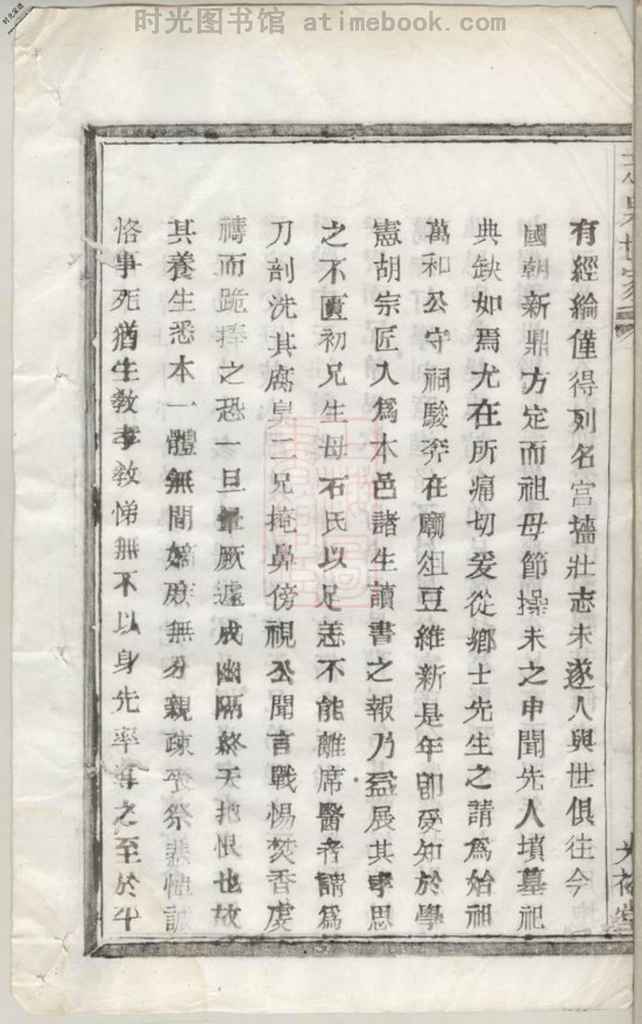 时光图书馆 atimebook.com
有經綸僅得列名宫墻壯志未遂人與世俱往今
國朝新鼎方定而祖母節操未之申聞先人墳墓祀
典缺如焉尤在所痛切爰從鄉士先生之請爲始祖
萬和公守祠駿奔在廟俎豆維新是年即受知於學
憲胡宗匠入爲本邑諸生讀書之報乃益展其孝思
之不匱初兄生母石氏以足恙不能離席醫者謂爲
刀剖洗其腐臭二兄掩鼻傍視公聞言戰惕焚香虔
禱而跪捧之恐一旦暈厥遽成幽隔終天抱恨也故
其養生悉本一體無間嫡庶無分親疎喪祭悲慟誠
恪事死猶生教孝教悌無不以身先率導之至於斗